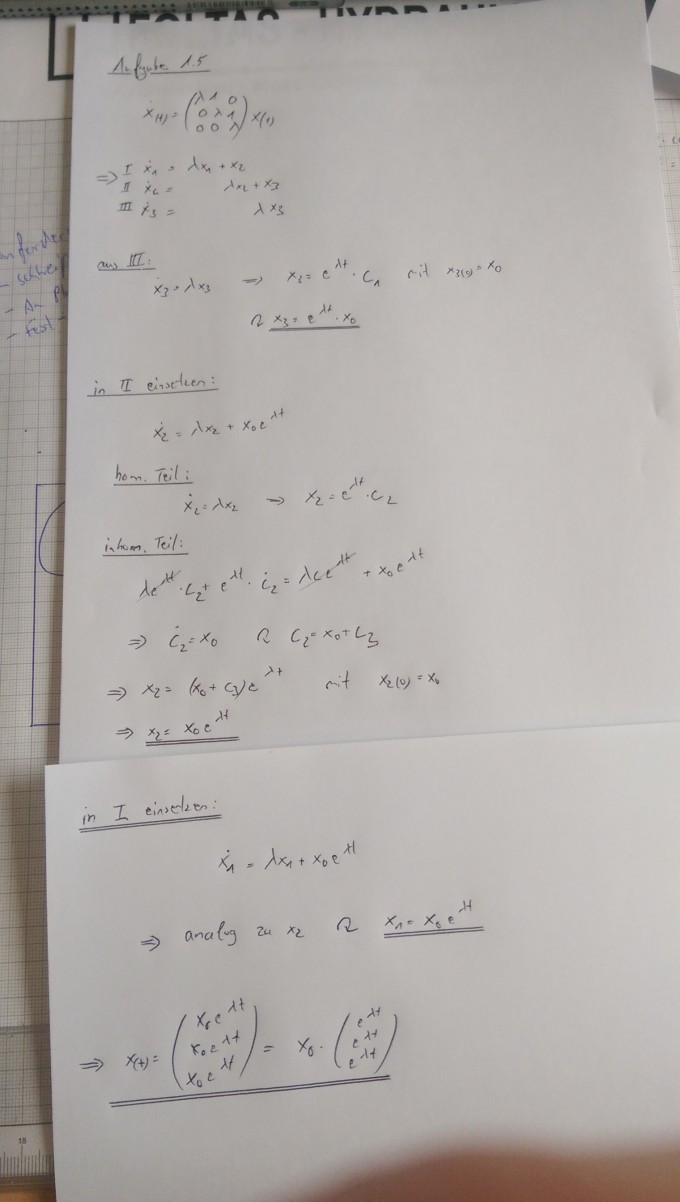 Aufgabe 1.5
ẋ(t) = (λ 1 0
0 λ 1
0 0 λ) x(t)
⇒ I ẋ₁ = λx₁ + x₂
II ẋ₂ = λx₂ + x₃
III ẋ₃ = λx₃
aus III:
ẋ₃ = λx₃ ⇒ x₃ = e^λt · C₁ mit x₃(0) = x₀
x₃ = e^λt · x₀
in II einsetzen:
ẋ₂ = λx₂ + x₀e^λt
hom. Teil:
ẋ₂ = λx₂ ⇒ x₂ = e^λt · C₂
inhom. Teil:
λe^λt · C₂ + e^λt · Ċ₂ = λCe^λt + x₀e^λt
⇒ Ċ₂ = x₀ C₂ = x₀ + C₃
⇒ x₂ = (x₀ + C₃)e^λt mit x₂(0) = x₀
⇒ x₂ = x₀e^λt
in I einsetzen:
ẋ₁ = λx₁ + x₀e^λt
⇒ analog zu x₂ x₁ = x₀e^λt
⇒ x(t) = (x₀e^λt
x₀e^λt
x₀e^λt) = x₀ · (e^λt
e^λt
e^λt)
18